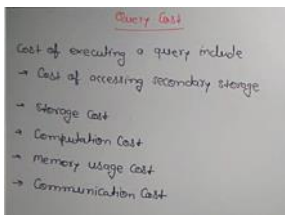 Query Cost
Cost of executing a query include
→ Cost of accessing secondary storage
→ Storage Cost
→ Computation Cost
→ Memory usage Cost
→ Communication Cost